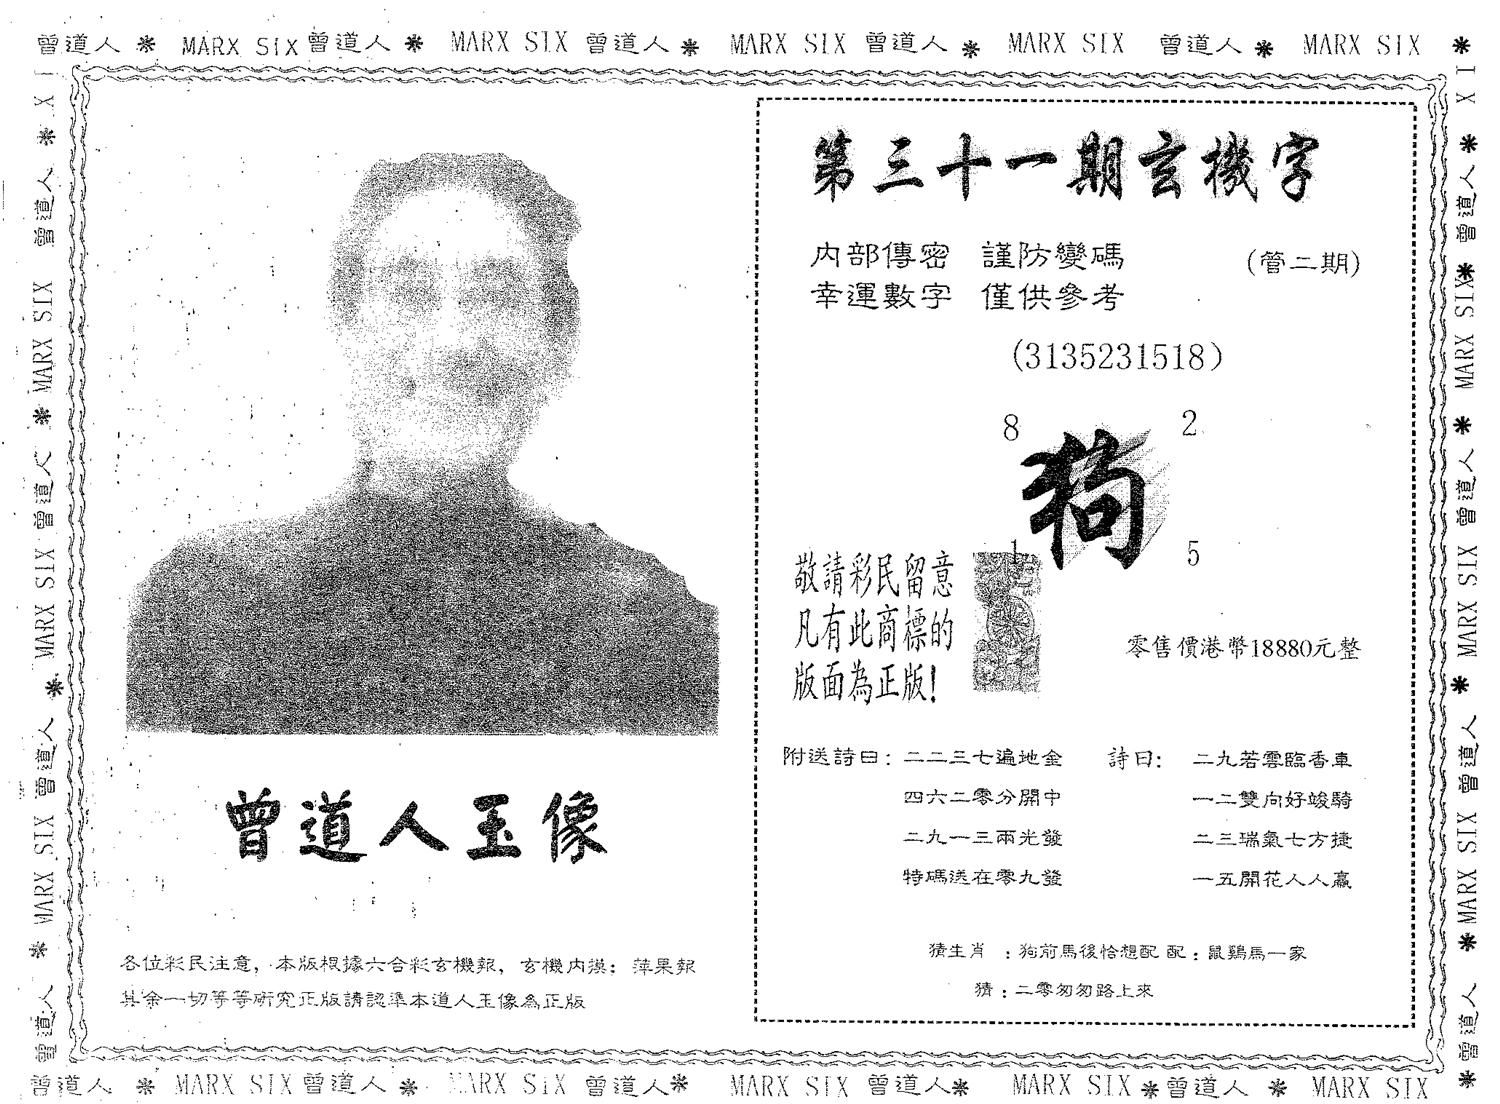 曾道人 ＊ MARX SIX 曾道人 ＊ MARX SIX 曾道人 ＊ MARX SIX 曾道人 ＊ MARX SIX 曾道人 ＊ MARX SIX ＊
第三十一期玄機字
內部傳密 謹防變碼 (管二期)
幸運數字 僅供參考
(3135231518)
8 2
狗
1 5
敬請彩民留意
凡有此商標的
版面為正版!
零售價港幣18880元整
附送詩曰: 二二三七遍地金 詩曰: 二九若雲臨香車
四六二零分開中 一二雙向好竣騎
二九一三兩光發 二三瑞氣七方捷
特碼送在零九發 一五開花人人贏
猜生肖 : 狗前馬後恰想配 配 : 鼠鷄馬一家
猜 : 二零匆匆路上來
曾道人玉像
各位彩民注意, 本版根據六合彩玄機報, 玄機內漠; 萍果報
其余一切等等研究正版請認準本道人玉像為正版
曾道人 ＊ MARX SIX 曾道人 ＊ MARX SIX 曾道人 ＊ MARX SIX 曾道人 ＊ MARX SIX ＊ 曾道人 ＊ MARX SIX ＊
曾道人 ＊ MARX SIX 曾道人 ＊ MARX SIX 曾道人 ＊ MARX SIX 曾道人 ＊ X I
X I ＊ 曾道人 ＊ MARX SIX 曾道人 ＊ MARX SIX 曾道人 ＊ MARX SIX ＊ 曾道人